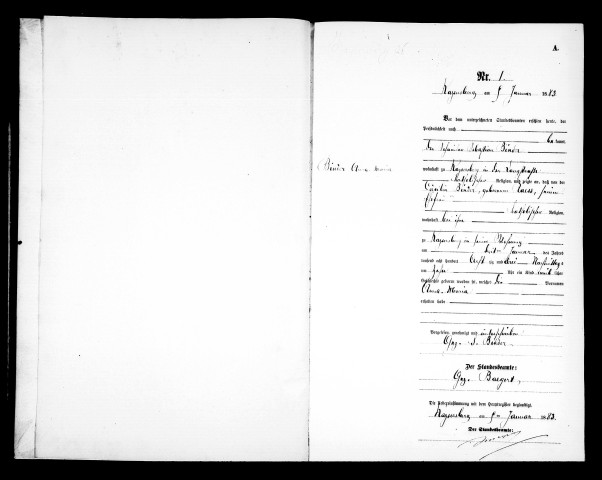 A.
Nr. 1.
Kaysersberg am 5 Januar 1883
Vor dem unterzeichneten Standesbeamten erschien heute, der
Persönlichkeit nach
be kannt,
der Sebastian Binder
wohnhaft zu Kaysersberg in der
katholischer Religion, und zeigte an, daß von der
Binder, geborenen seiner
Ehefrau
katholischer Religion,
wohnhaft bei ihm
Binder Anna Maria
zu Kaysersberg in seiner Wohnung
am Januar des Jahres
tausend acht hundert achtzig und drei Nachmittags
um Uhr ein Kind weib liches
Geschlechts geboren worden sei, welches die Vornamen
Anna Maria
erhalten habe
Vorgelesen, genehmigt und unterschrieben
Gez. S. Binder
Der Standesbeamte:
Gez. Baegert
Die Uebereinstimmung mit dem Hauptregister beglaubigt.
Kaysersberg am 5 Januar 1883.
Der Standesbeamte: